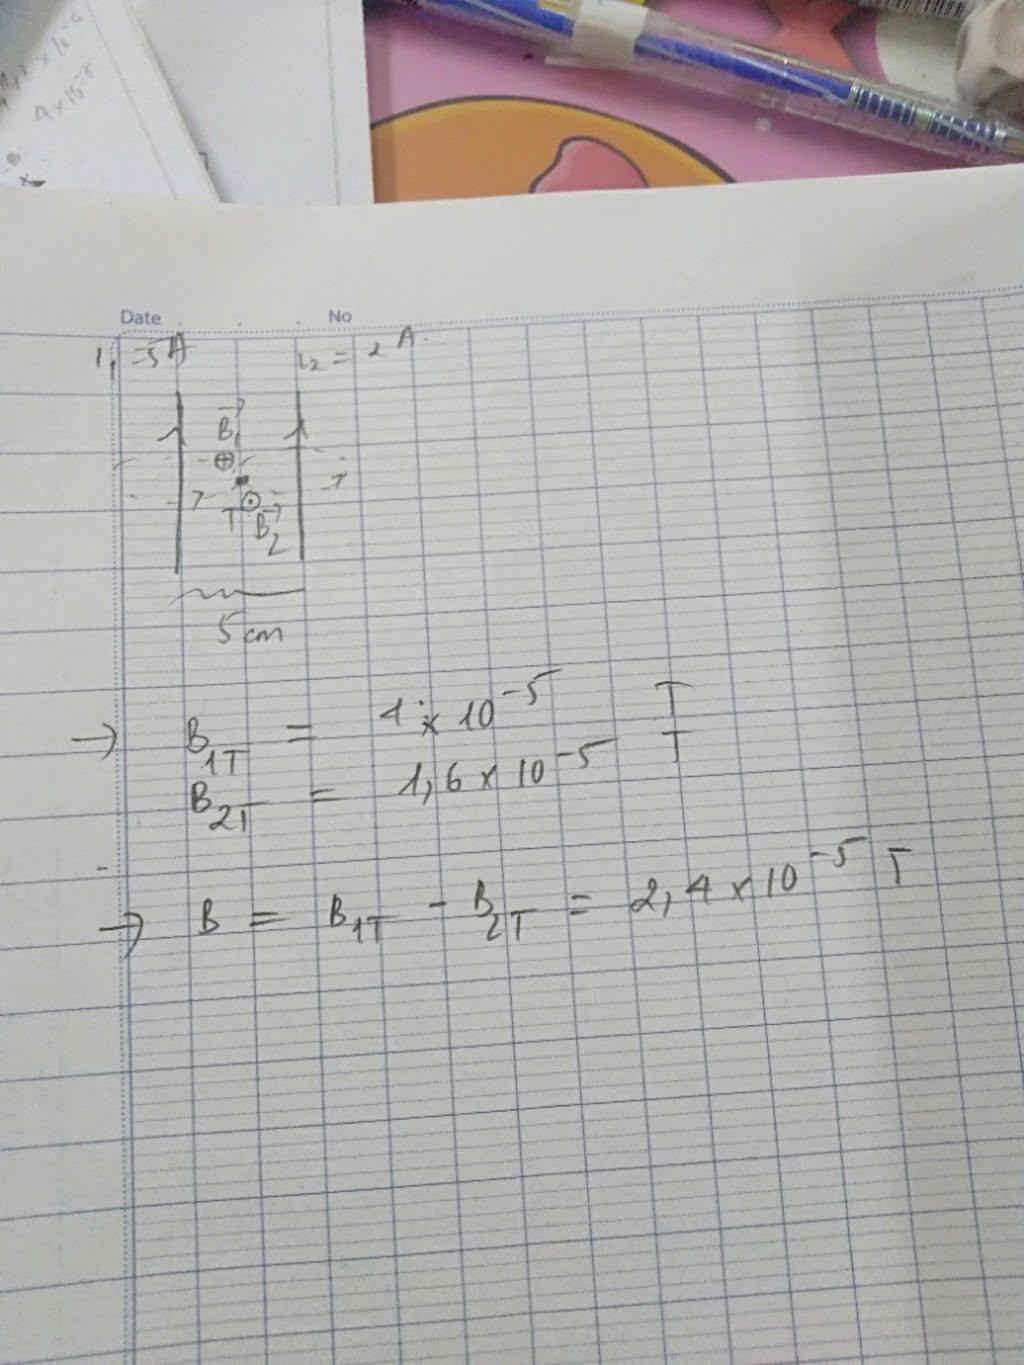 4 x 10⁻⁸
Date . . . No
I₁ = 5A I₂ = 2 A.
B₁
T
B₂
5 cm
→ B₁T = 4 x 10⁻⁵ T
B₂T = 1,6 x 10⁻⁵ T
→ B = B₁T - B₂T = 2,4 x 10⁻⁵ T